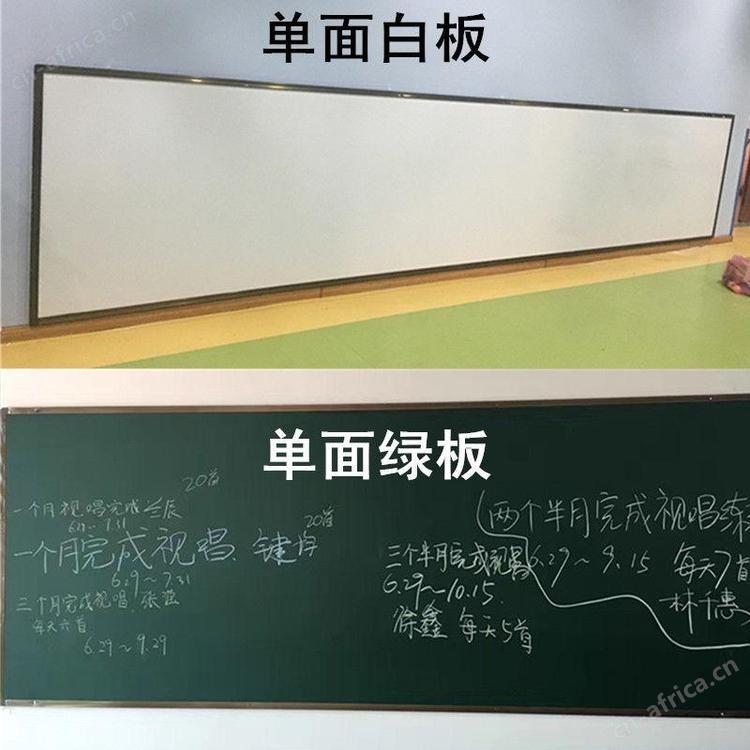 单面白板
单面绿板
20首
一个月视唱完成 兰辰
6.1~7.31
一个月完成视唱、键
20首
6.29~7.31
三个月完成视唱、张
每天六首
6.29~9.29
(两个半月完成视唱练
三个半月完成视唱
6.29~9.15 每天7首
6.29~10.15.
林千惠
徐鑫 每天5首
africa.cn
africa.cn